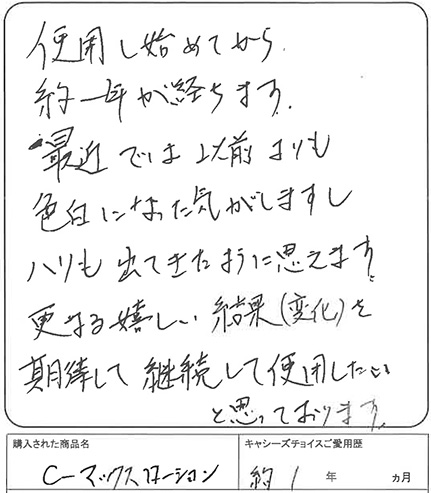 使用し始めてから
約一年が経ちます。
最近では以前よりも
色白になった気がしますし
ハリも出てきたように思えます。
更なる嬉しい結果(変化)を
期待して継続して使用したい
と思っております。
購入された商品名
キャシーズチョイスご愛用歴
C-マックスローション
約 1 年 ヵ月